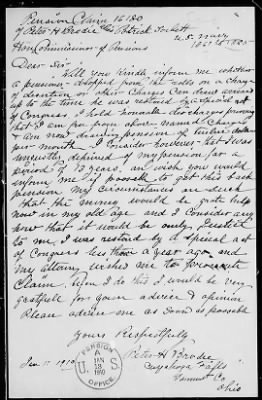 Pension Claim 16180
of Peter H Brodie alias Patrick Sackett
U.S. Navy
Hon Commissioner of Pensions
Dear Sir
Will you kindly inform me whether
a pensioner dropped from the rolls on a charge
of desertion or other charges can draw arrears
up to the time he was restored by a special act
of Congress I hold Honorable discharges proving
that I am free from above named charges
I am now drawing pension of twelve dollars
per month. I consider however that I was
unjustly deprived of my pension for a
period of 13 years, and wish you would
inform me if possible to get this back
pension. My circumstances are such
that the money would be great help
now in my old age and I consider any
how that it would be only Justice
to me, I was restored by a special act
of Congress less than a year ago and
my attorney wishes me to
Claim. before I do this I would be very
gratefull for your advice & opinion
Please advise me as soon as possible
Yours Respectfully
Peter H Brodie
Cuyahoga Falls
Summit Co
Ohio
Jan 11 1910
PENSION
A
JAN
13
1910
U S
OFFICE